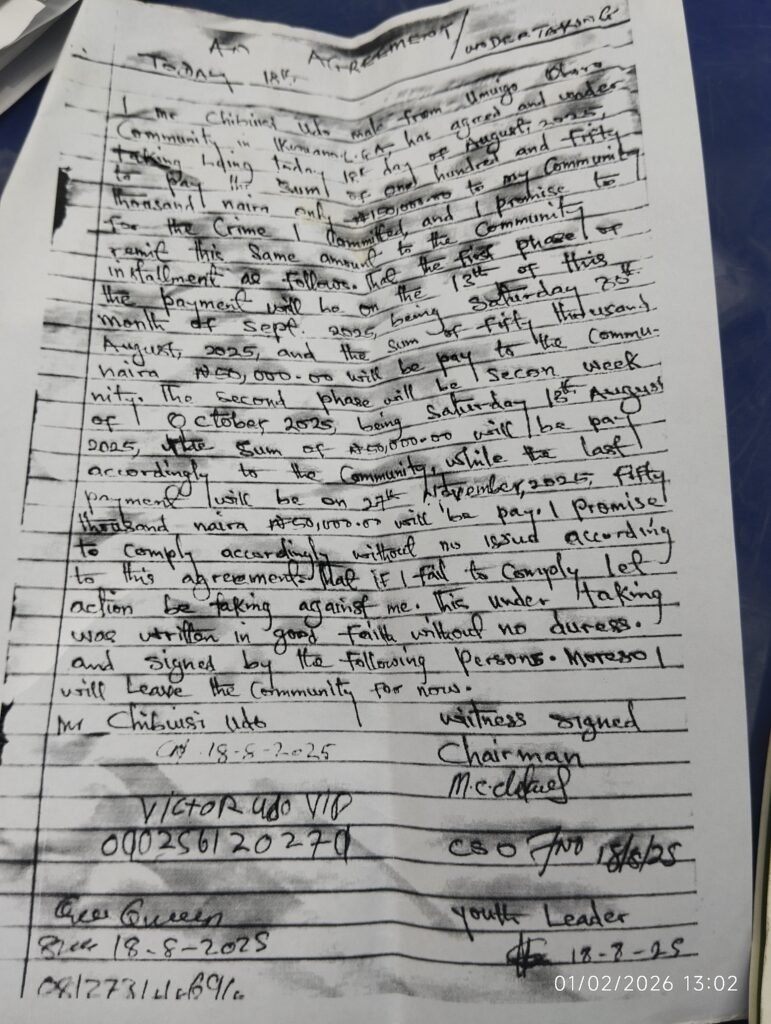 An AGREEMENT/UNDERTAKING
TODAY
I Mr Chibuisi Udo male from Umuigo
Community in Ikwuano L.G.A. has agreed and under-
taking being today 18th day of August, 2025,
to pay the sum of one hundred and fifty
thousand naira only ₦150,000.00 to my Community
for the Crime I Committed, and I promise to
remit this same amount to the Community
installment as follows. That the first phase of
the payment will be on the 13th of this
month of Sept. 2025, being Saturday
August, 2025, and the sum of fifty thousand
naira ₦50,000.00 will be pay to the Commu-
nity. The second phase will be secon week
of October 2025, being Saturday 18th August
2025, the sum of ₦50,000.00 will be pay
accordingly to the Community, while the last
payment will be on 27th November, 2025, fifty
thousand naira ₦50,000.00 will be pay. I promise
to comply accordingly without no issud according
to this agreements that if I fail to comply let
action be taking against me. This under taking
was written in good faith without no duress.
and signed by the following persons. Moreso I
will Leave the Community for now.
Mr Chibuisi Udo witness signed
18-8-2025 Chairman
VICTOR Udo VIP
CSO 18/8/25
Queen youth Leader
18-8-2025 18-8-25
01/02/2026 13:02